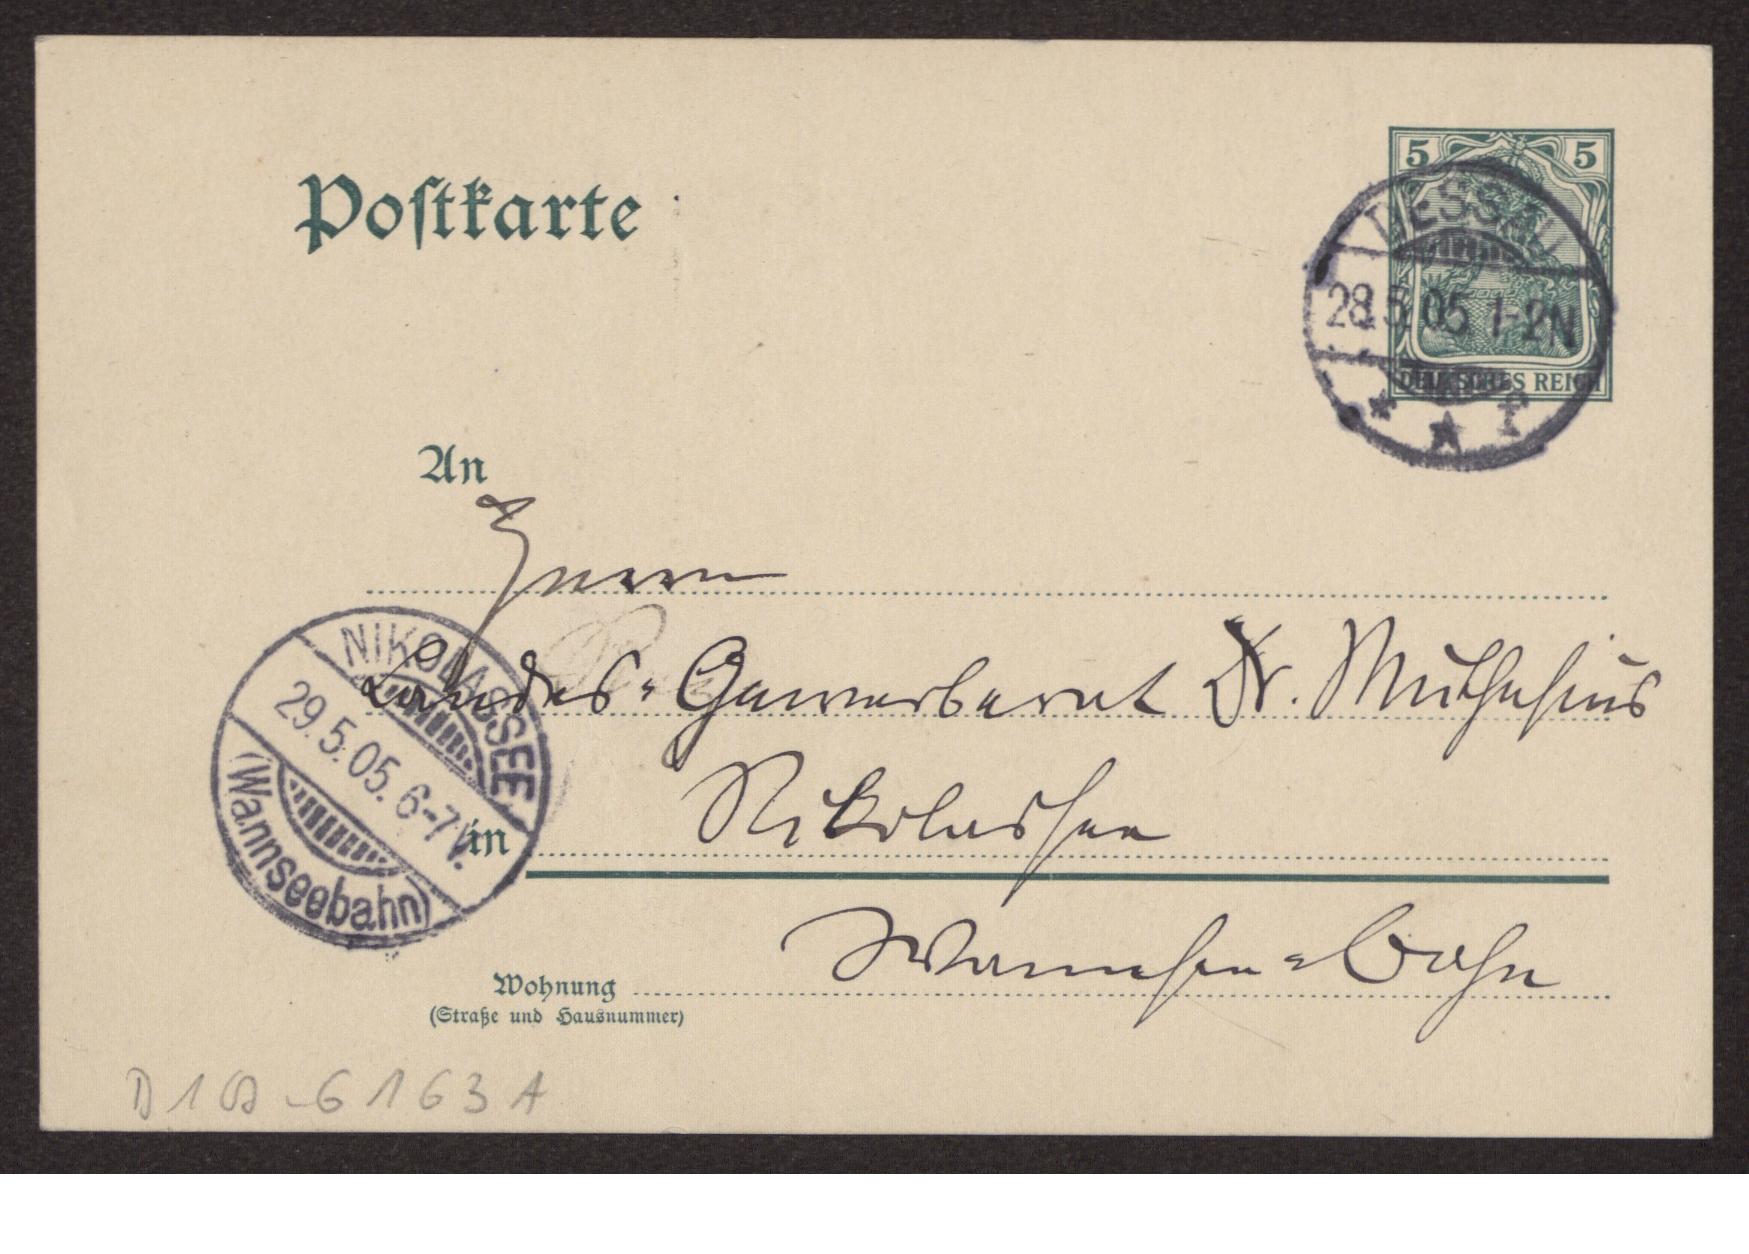 Postkarte
5 5
DEUTSCHES REICH
DESSAU
28.5.05 1-2N
* * f
An
Herrn
Landes-Gewerberat Dr. Muthesius
NIKOLASSEE
29.5.05. 6-7V.
(Wannseebahn)
in Nikolassee
Wannsee-Bahn
Wohnung
(Straße und Hausnummer)
D 102-6163 A